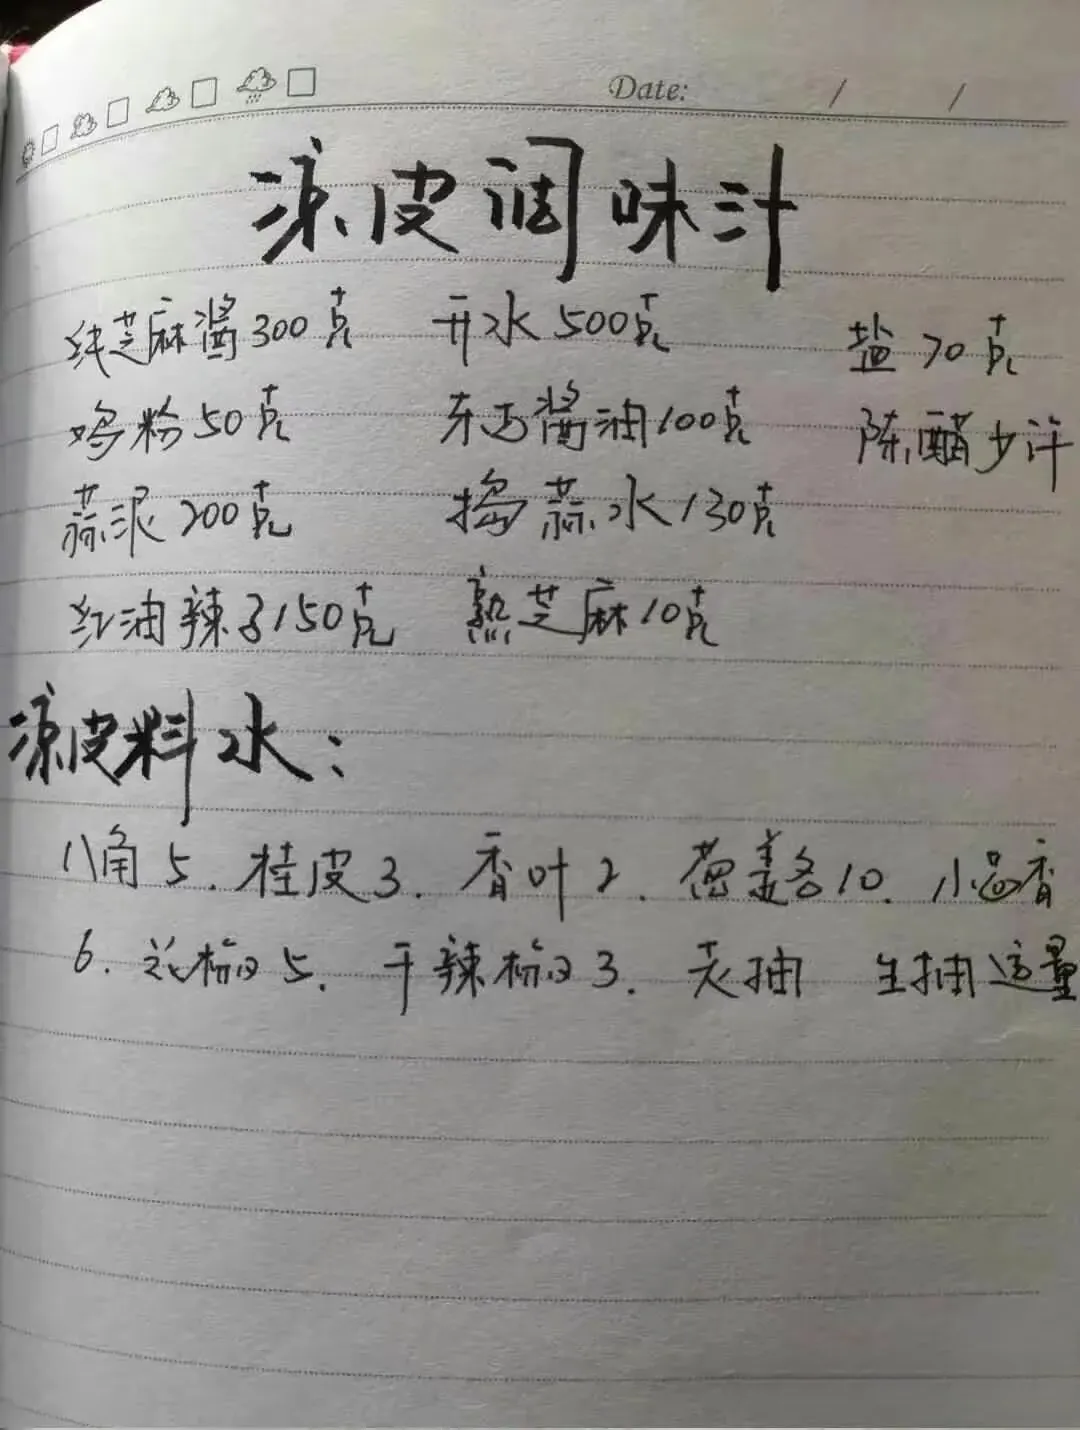 Date: / /
凉皮调味汁
纯芝麻酱300克 开水500克 盐70克
鸡粉50克 东古酱油100克 陈醋少许
蒜泥200克 捣蒜水130克
红油辣子150克 熟芝麻10克
凉皮料水：
八角5. 桂皮3. 香叶2. 葱姜各10. 小茴香
6. 花椒5. 干辣椒3. 老抽 生抽适量